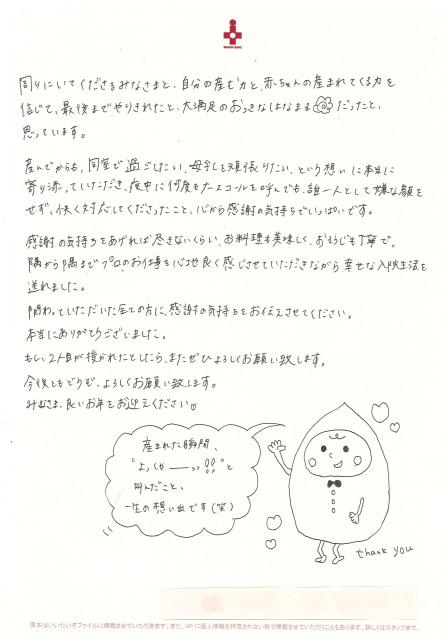 周りにいてくださるみなさまと、自分の産む力と、赤ちゃんの産まれてくる力を
信じて、最後までやりきれたと、大満足のおっきなはなまるだったと、
思っています。
産んでからも、同室で過ごしたい、母乳を頑張りたい、という想いに本当に
寄り添っていただき、夜中に何度もナースコールを呼んでも、誰一人として嫌な顔を
せず、快く対応してくださったこと、心から感謝の気持ちでいっぱいです。
感謝の気持ちをあげれば尽きないくらい、お料理も美味しく、おそうじも丁寧で、
隅から隅までプロのお仕事を心地良く感じさせていただきながら幸せな入院生活を
送れました。
関わっていただいた全ての方に、感謝の気持ちをお伝えさせてください。
本当にありがとうございました。
もし、2人目が授かれたとしたら、またぜひよろしくお願い致します。
今後ともどうぞ、よろしくお願い致します。
みなさま、良いお年をお迎えください♡
産まれた瞬間、
"よっしゃーーっ!!"と
叫んだこと、
一生の想い出です(笑)
thank you
原本はいいたいぞファイルに掲載させていただきます。また、HPに個人情報を特定されない形で掲載させていただくこともあります。詳しくはスタッフまで。